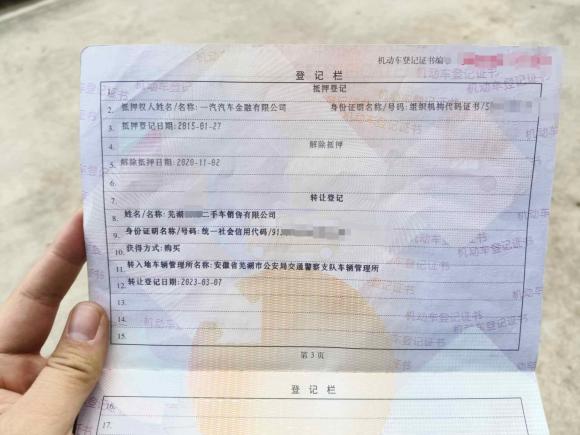 机动车登记证书编号
登记栏
1. 抵押登记
2. 抵押权人姓名/名称:一汽汽车金融有限公司 身份证明名称/号码:组织机构代码证书/5
3. 抵押登记日期:2015-01-27
4. 解除抵押
5. 解除抵押日期:2020-11-02
6.
7. 转让登记
8. 姓名/名称:芜湖 二手车销售有限公司
9. 身份证明名称/号码:统一社会信用代码/91
10. 获得方式:购买
11. 转入地车辆管理所名称:安徽省芜湖市公安局交通警察支队车辆管理所
12. 转让登记日期:2023-03-07
13.
14.
15.
第 3 页
登记栏
16.
17.